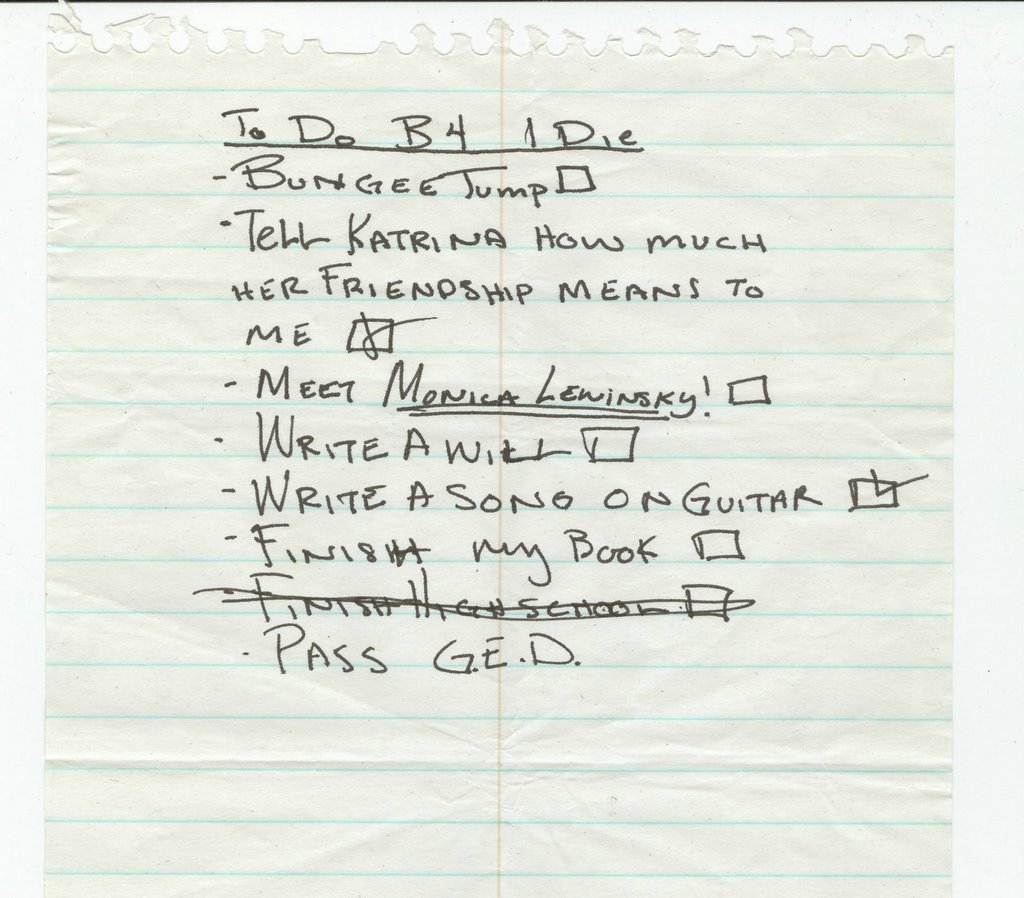 To Do B4 I Die
- Bungee Jump ☐
- Tell Katrina how much
her Friendship means to
me ☑
- Meet Monica Lewinsky! ☐
- Write a will ☐
- Write a song on Guitar ☑
- Finish my Book ☐
- Finish High school ☐
- Pass G.E.D.